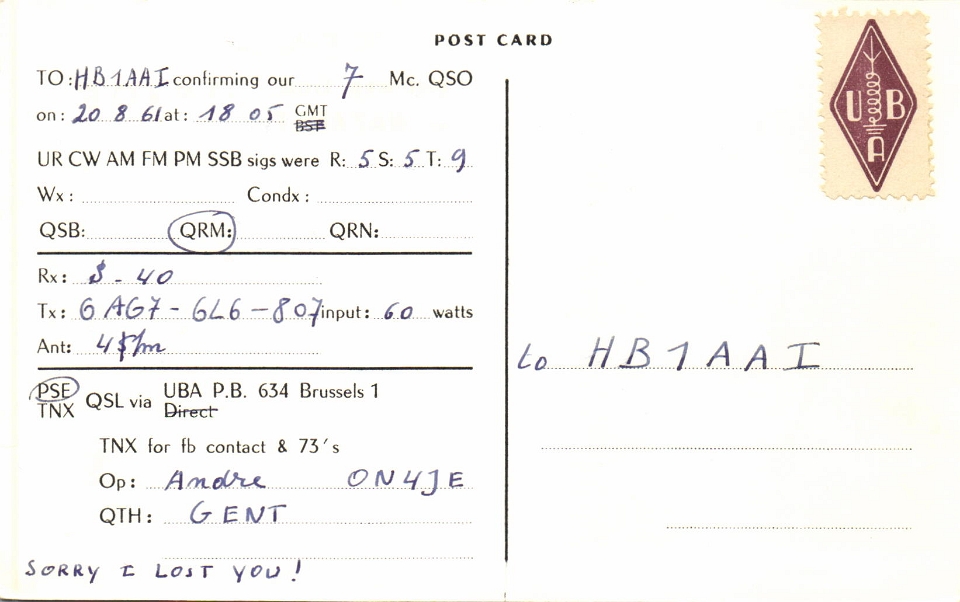 POST CARD
TO: HB1AAI confirming our 7 Mc. QSO
on: 20 8 61 at: 18 05 GMT
BST
UR CW AM FM PM SSB sigs were R: 5 S: 5 T: 9
Wx: Condx:
QSB: QRM: QRN:
Rx: S-40
Tx: 6AG7 - 6L6 - 807 input: 60 watts
Ant:
PSE
TNX QSL via UBA P.B. 634 Brussels 1
Direct
TNX for fb contact & 73's
Op: Andre ON4JE
QTH: GENT
SORRY I LOST YOU!
UBA
to HB1AAI